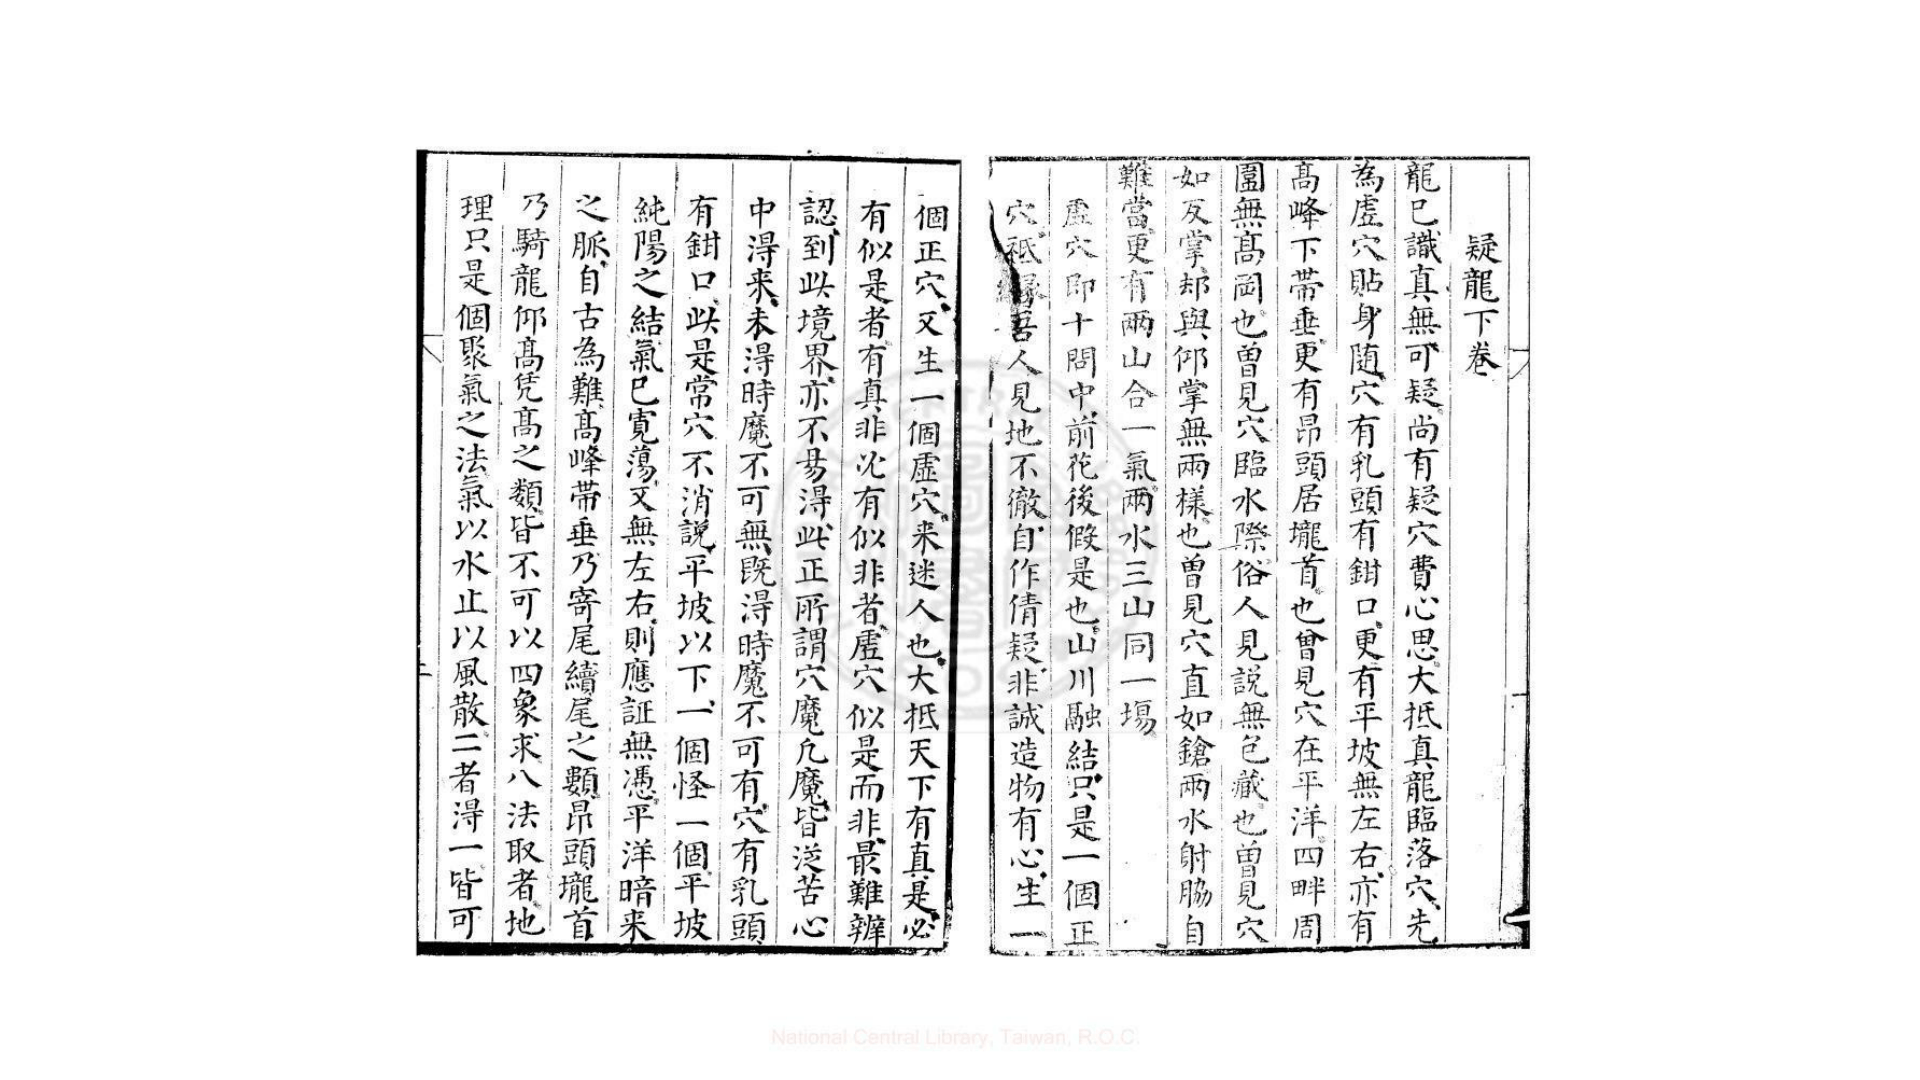 疑龍下卷
龍已識真無可疑尚有疑穴費心思大抵真龍臨落穴先
為虛穴貼身隨穴有乳頭有鉗口更有平坡無左右亦有
高峰下帶垂更有昂頭居壠首也曾見穴在平洋四畔周
圍無高岡也曾見穴臨水際俗人見説無包藏也曽見穴
如反掌却與仰掌無兩樣也曾見穴直如鎗兩水射脇自
難當更有兩山合一氣兩水三山同一塲
虛穴即十問中前花後假是也山川融結只是一個正
穴祗緣吾人見地不徹自作倩疑非誠造物有心生一
個正穴又生一個虛穴来迷人也大抵天下有真是必
有似是者有真非必有似非者虛穴似是而非最難辨
認到此境界亦不易得此正所謂穴魔凡魔皆從苦心
中得来未得時魔不可無既得時魔不可有穴有乳頭
有鉗口此是常穴不消説平坡以下一個怪一個平坡
純陽之結氣已寛蕩又無左右則應証無憑平洋暗来
之脈自古為難高峰帶垂乃寄尾續尾之類昂頭壠首
乃騎龍仰高凭高之類皆不可以四象求八法取者地
理只是個聚氣之法氣以水止以風散二者得一皆可
National Central Library, Taiwan, R.O.C.